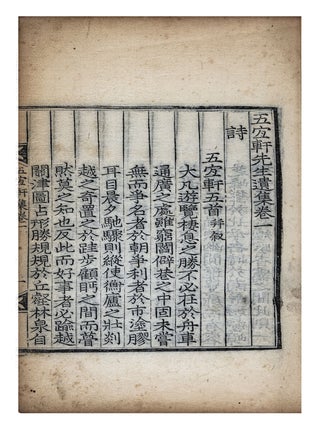 五宜軒先生遺集卷一
詩
五宜軒五首並敘
大凡遊覽棲息之勝不必在於舟車
通廣之處雖窮閭僻巷之中固未嘗
無而爭名者於朝爭利者於市塗膠
耳目晨夕馳驟則縱使衡廬之壯剡
越之奇置之於跬步顧眄之間而瞢
然莫之知也反此而好事者必踰越
關津圖占形勝規規於丘壑林泉自
五宜軒集卷一